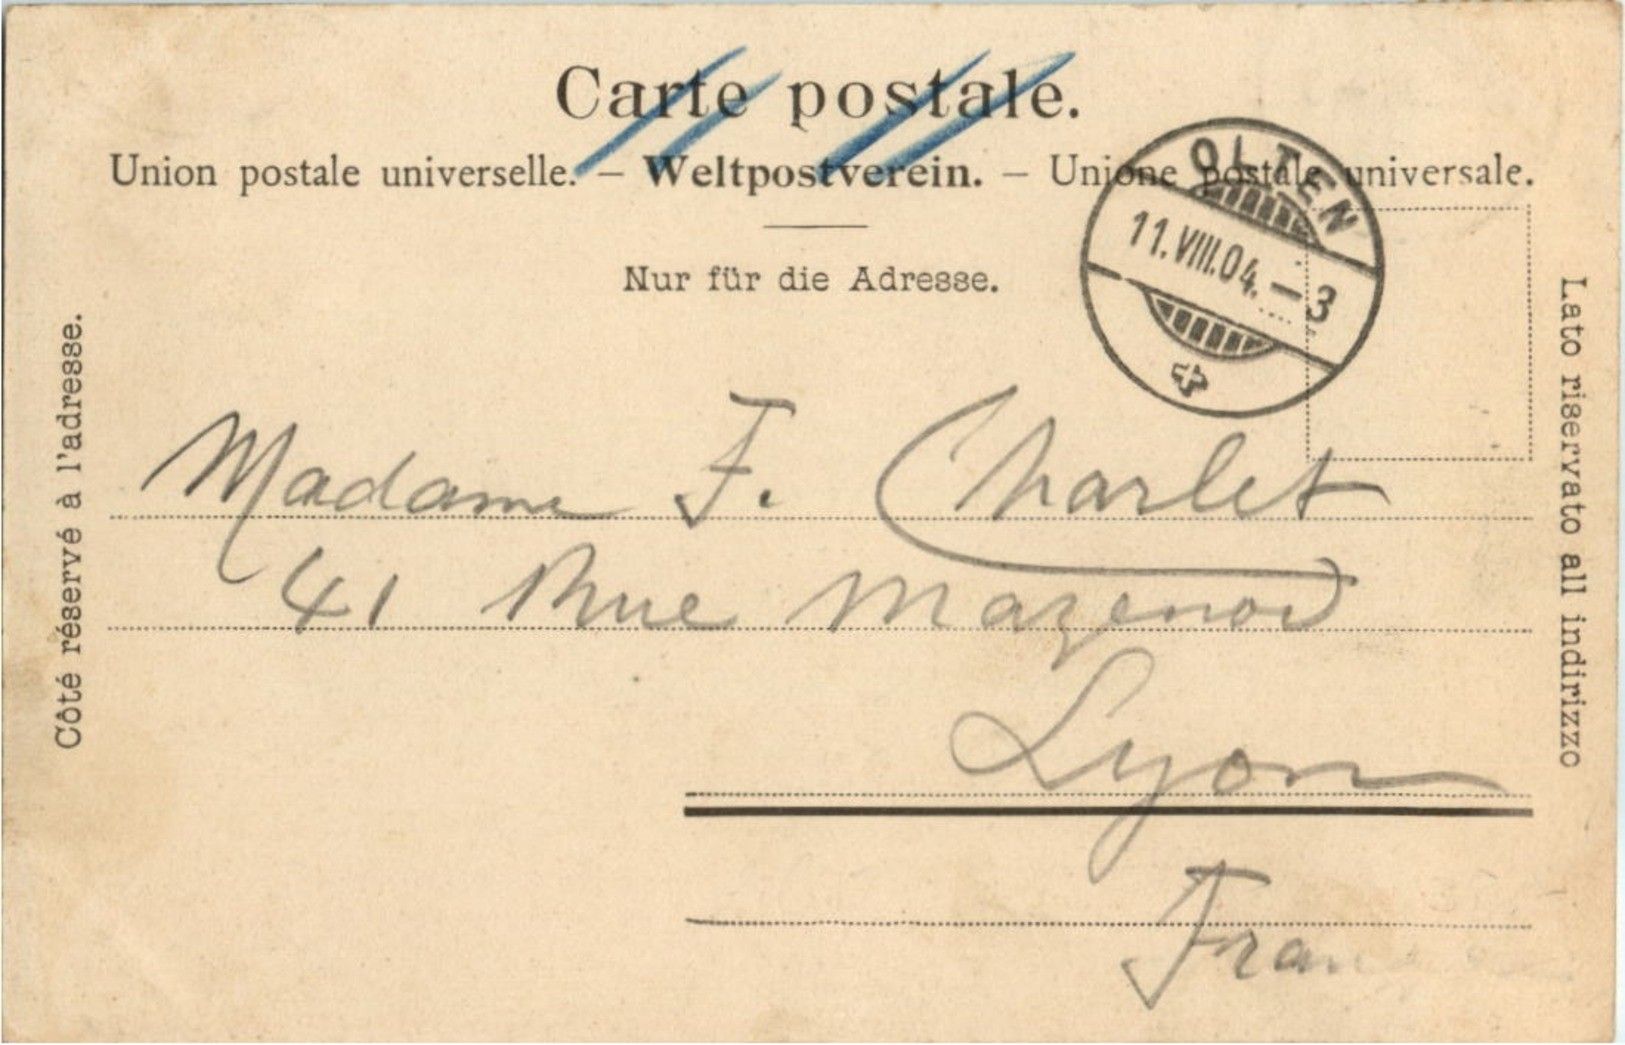 Carte postale.
Union postale universelle. – Weltpostverein. – Unione postale universale.
Nur für die Adresse.
OLTEN
11.VIII.04.–3
Côté réservé à l'adresse.
Lato riservato all indirizzo
Madame F. Charlet
41 Rue Mazenod
Lyon